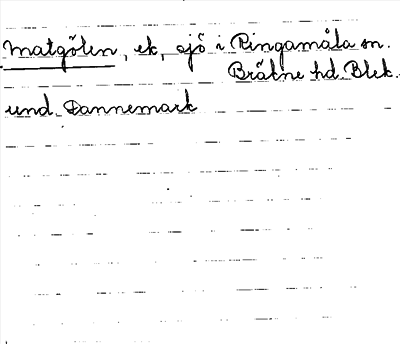 Matgölen, ek, sjö i Ringamåla sn.
Bräkne hd. Blek.
und. Dannemark